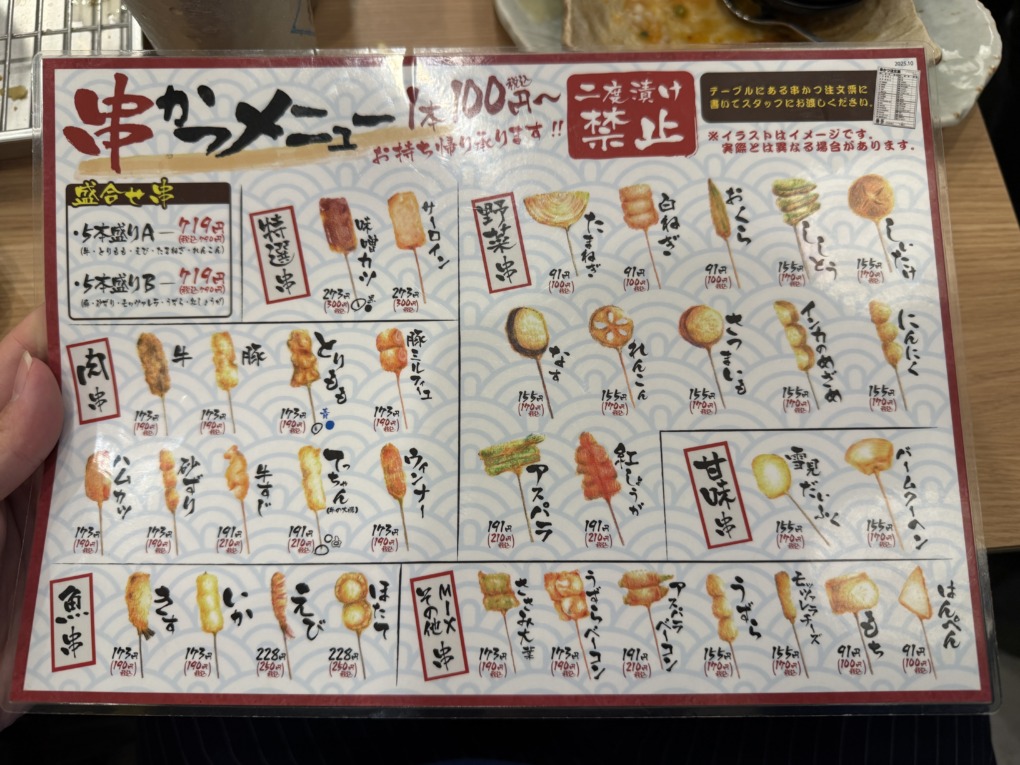 串かつメニュー
1本100円〜
税込
お持ち帰り承ります!!
二度漬け
禁止
2025.10
テーブルにある串かつ注文票に
書いてスタッフにお渡しください。
※イラストはイメージです。
実際とは異なる場合があります。
盛合せ串
・5本盛りA―719円
(税込790円)
(牛・とりもも・えび・たまねぎ・れんこん)
・5本盛りB―719円
(税込790円)
特選串
味噌カツ
273円
(300円)
税込
サーロイン
273円
(300円)
税込
野菜串
たまねぎ
91円
(100円)
税込
白ねぎ
91円
(100円)
税込
おくら
91円
(100円)
税込
ししとう
155円
(170円)
税込
しいたけ
155円
(170円)
税込
なす
155円
(170円)
税込
れんこん
155円
(170円)
税込
さつまいも
155円
(170円)
税込
インカのめざめ
155円
(170円)
税込
にんにく
155円
(170円)
税込
アスパラ
191円
(210円)
税込
紅しょうが
191円
(210円)
税込
肉串
牛
173円
(190円)
税込
豚
173円
(190円)
税込
とりもも
173円
(190円)
税込
豚ミルフィユ
173円
(190円)
税込
ハムカツ
173円
(190円)
税込
砂ずり
173円
(190円)
税込
牛すじ
191円
(210円)
税込
てっちゃん
191円
(210円)
税込
ウィンナー
173円
(190円)
税込
甘味串
雪見だいふく
155円
(170円)
税込
バームクーヘン
155円
(170円)
税込
魚串
きす
173円
(190円)
税込
いか
173円
(190円)
税込
えび
228円
(250円)
税込
ほたて
228円
(250円)
税込
MIX
その他
串
ささみ大葉
173円
(190円)
税込
うずらベーコン
173円
(190円)
税込
アスパラベーコン
191円
(210円)
税込
うずら
155円
(170円)
税込
モッツァレラチーズ
155円
(170円)
税込
もち
91円
(100円)
税込
はんぺん
91円
(100円)
税込